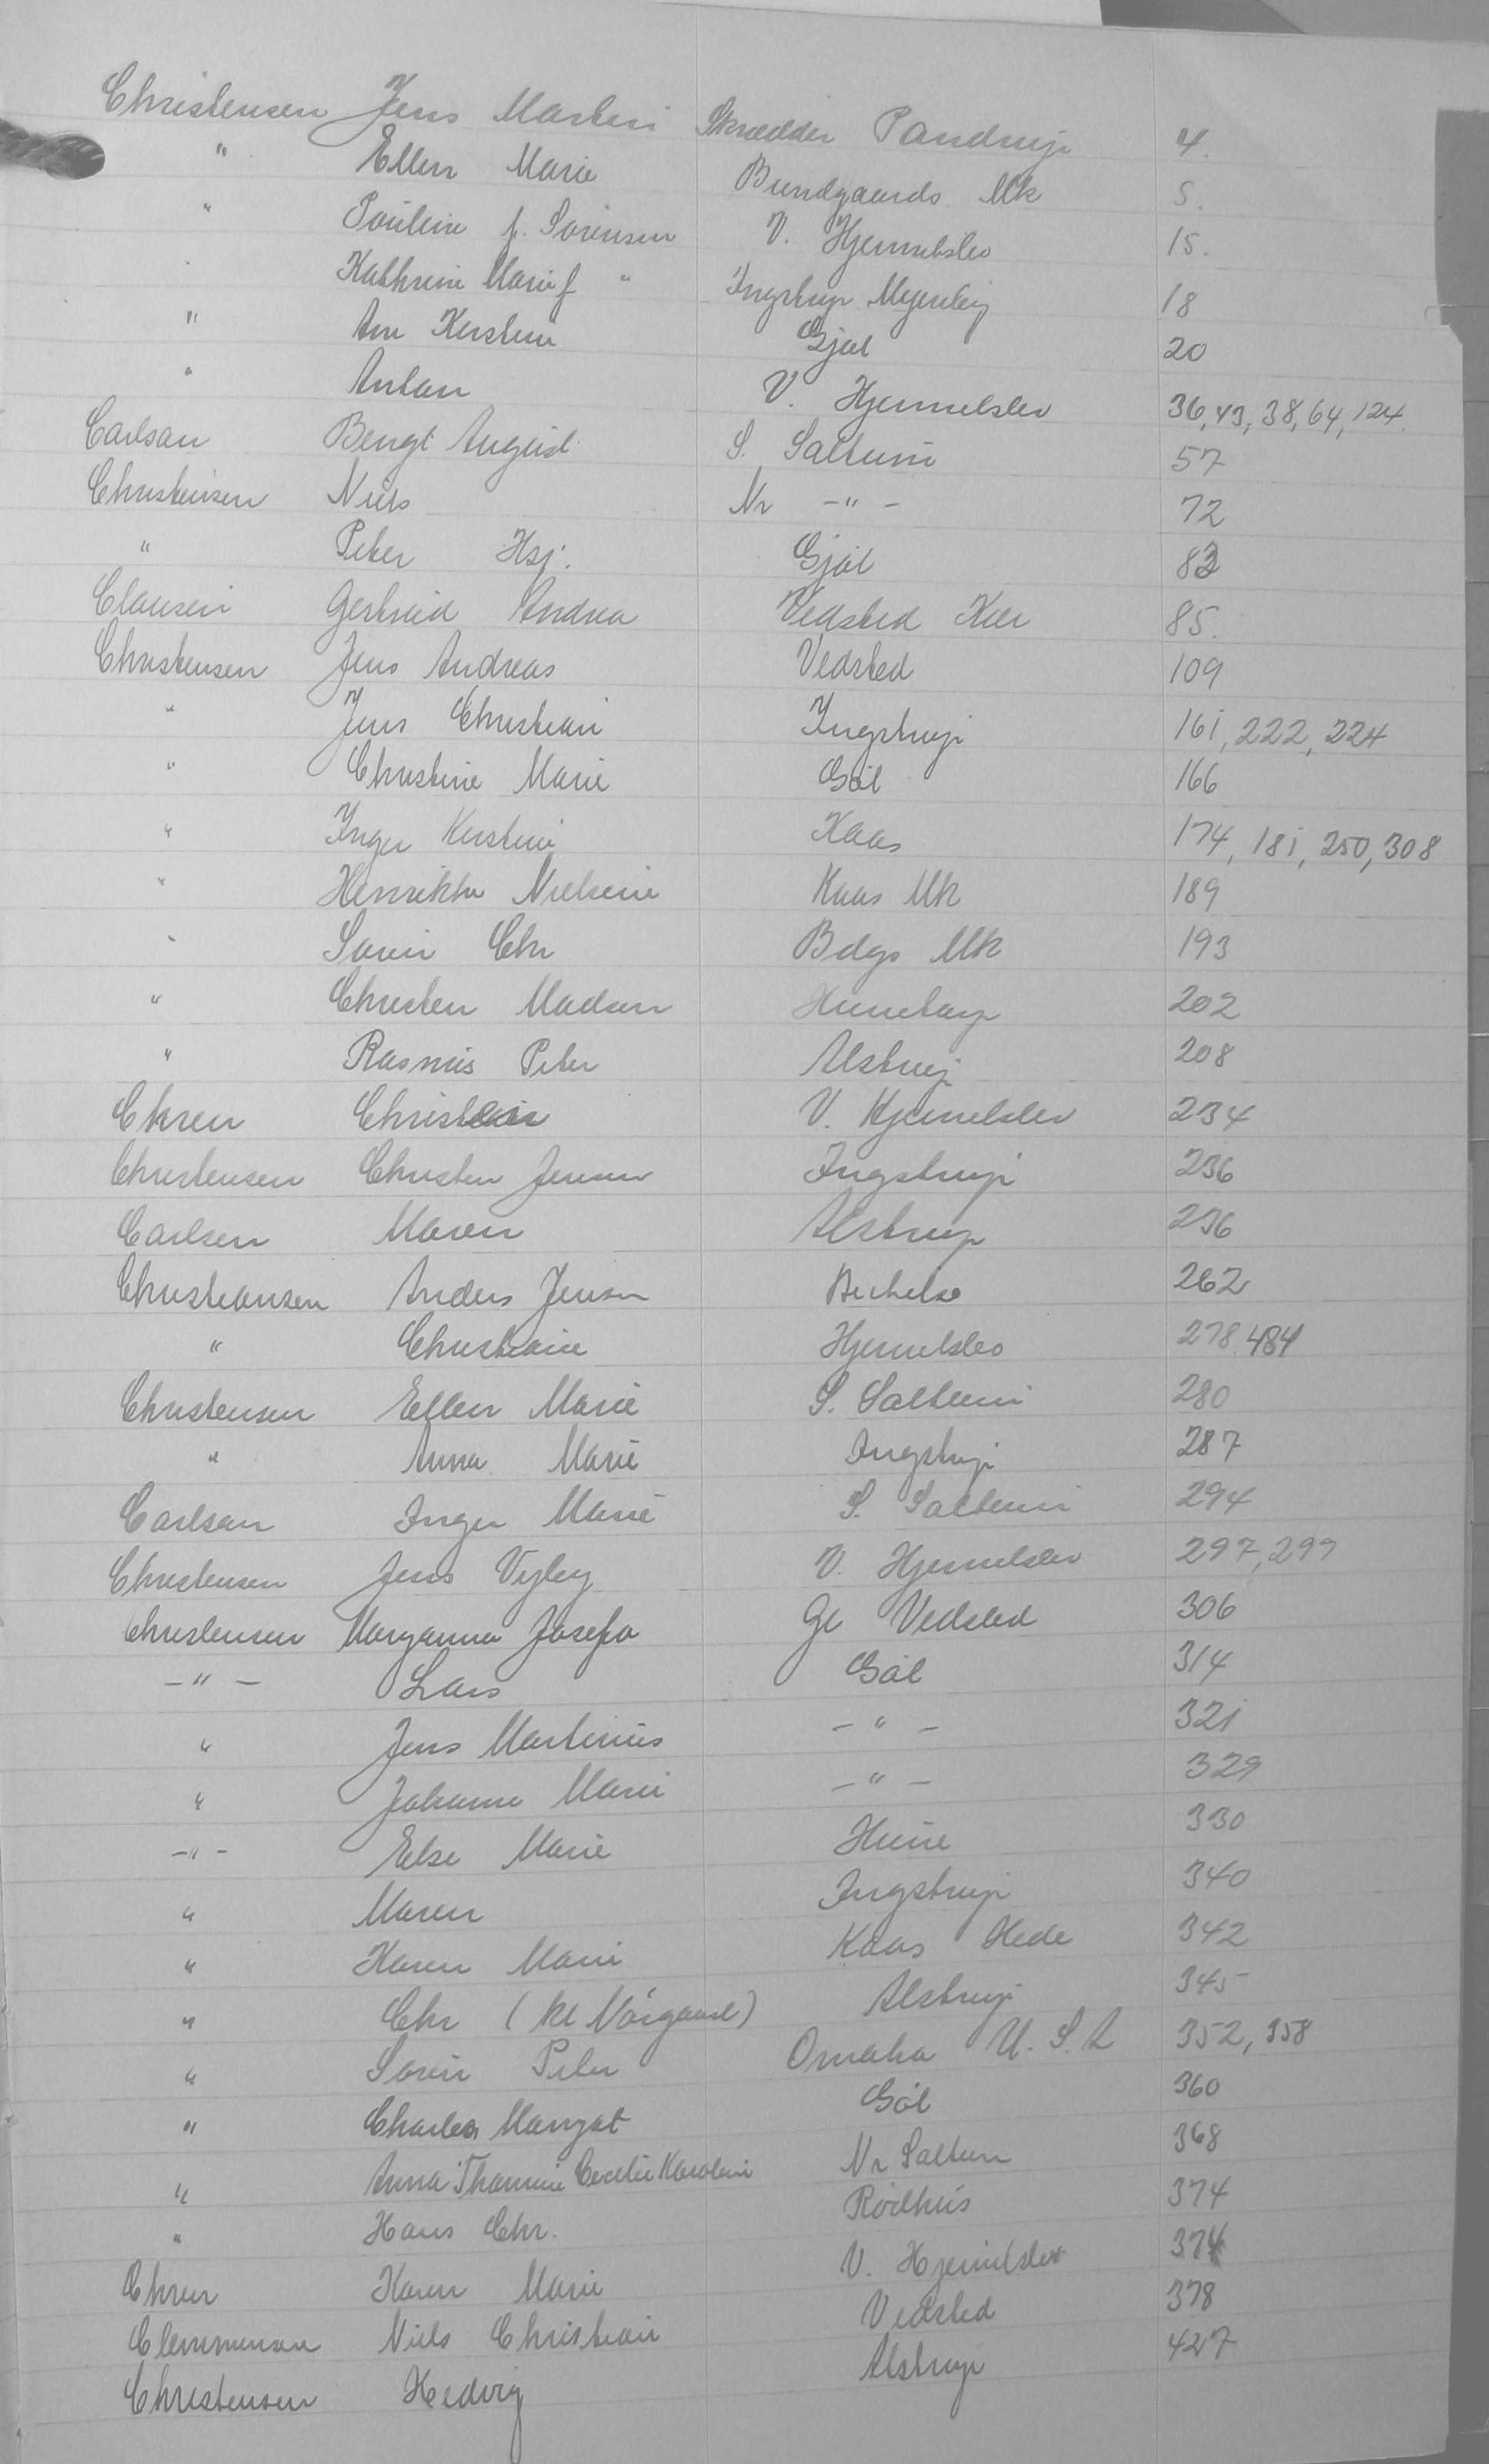 Christensen Jens Martin Skrædder Pandrup 4.
" Ellen Marie Bundgaards Mk 5.
" Pouline f. Sörensen V. Hjermelslev 15.
" Kathrine Marie f " Ingstrup Mejeriby 18
" Ane Kirstine Gjöl 20
" Anton V. Hjermelslev 36, 43, 38, 64, 124.
Carlson Bengt August S. Saltum 57
Christensen Niels Nr -"- 72
" Peter Hsj. Gjöl 83
Clausen Gertrud Andrea Vedsted Kær 85.
Christensen Jens Andreas Vedsted 109
" Jens Christian Ingstrup 161, 222, 224
" Christine Marie Göl 166
" Inger Kirstine Kaas 174, 181, 250, 308
" Henrikke Nielsine Kaas Mk 189
" Sören Chr Bdgs Mk 193
" Christen Madsen Hunetorp 202
" Rasmus Peter Alstrup 208
Chrsen Christian V. Hjermelslev 234
Christensen Christen Jensen Ingstrup 236
Carlsen Maren Alstrup 236
Christiansen Anders Jensen 262
" Christiane Hjermelslev 278. 484
Christensen Ellen Marie S. Saltum 280
" Anna Marie Ingstrup 287
Carlsen Inger Marie S. Saltum 294
Christensen Jens Vejby V. Hjermelslev 297, 299
Christensen Maryanna Josefa Gl Vedsted 306
-"- Lars Göl 314
" Jens Martinus -"- 321
" Johanne Marie -"- 329
-"- Else Marie Hune 330
" Maren Ingstrup 340
" Karen Marie Kaas Hede 342
" Chr (Kl Nörgaard) Alstrup 345
" Sören Peter Omaha U.S.A 352, 358
" Charles Margat Göl 360
" Anna Thomine Cecilie Karoline Nr Saltum 368
" Hans Chr. Rödhus 374
Chrsen Karen Marie V. Hjermelslev 374
Clemmensen Niels Christian Vedsted 378
Christensen Hedvig Alstrup 427